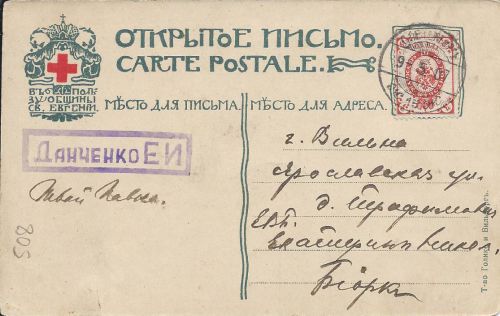 ОТКРЫТОЕ ПИСЬМО.
CARTE POSTALE.
ВЪ ПОЛЬ
ЗУ ОБЩИНЫ
СВ. ЕВГЕНІИ.
МѢСТО ДЛЯ ПИСЬМА.
МѢСТО ДЛЯ АДРЕСА.
ДАНЧЕНКО Е И
г. Вильна
Ярославская ул.
д. Трафимова
Екатерин
Біорк
508
Т-во Голике и Вильборгъ.